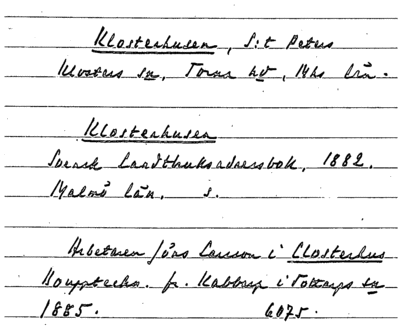 Klosterhusen, S:t Peters
Klosters sn, Torna hd, Mhs län.
Klosterhusen
Svensk Landtbruksadressbok, 1882.
Malmö län. s.
Arbetaren Jöns Larsson i Closterhus
fr. Kabbarp i Tottarps sn
1885. 6075.